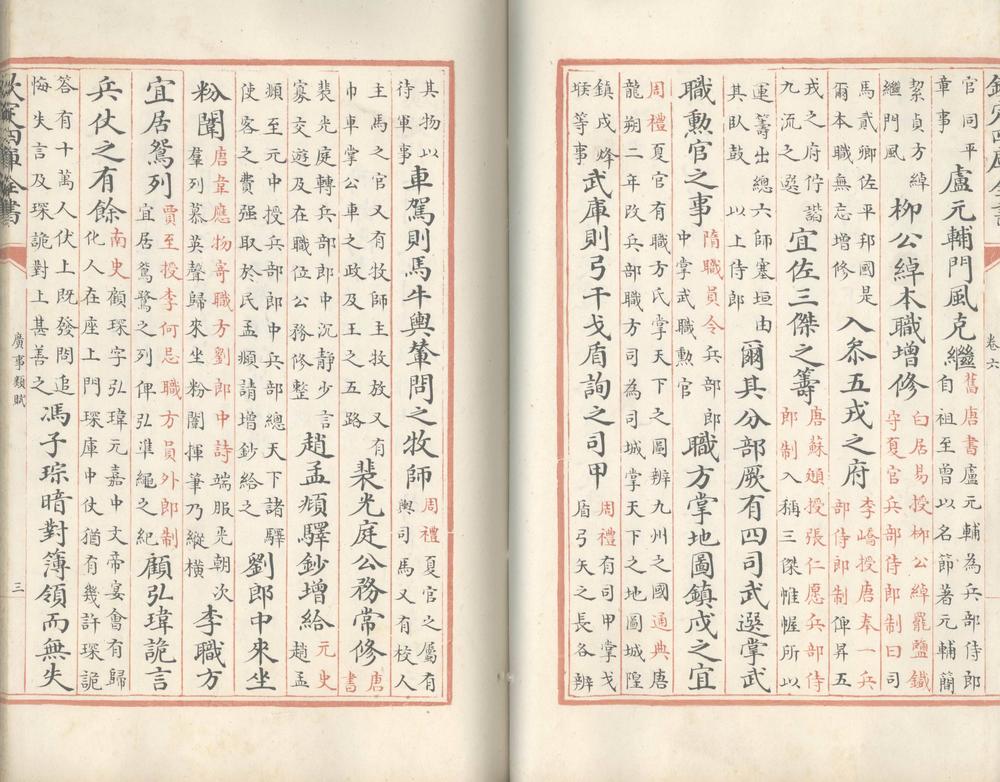 卷六
官同平章事盧元輔門風克繼舊唐書盧元輔為兵部侍郎自祖至曾以名節著元輔簡
絜貞方綽繼門風柳公綽本職增修白居易授柳公綽罷鹽鐵守夏官兵部侍郎制曰司
馬貳卿佐平邦國是爾本職無忘增修入叅五戎之府李嶠授唐奉一兵部侍郎制俾昇五
戎之府佇諧九流之選宜佐三傑之籌唐蘇頲授張仁愿兵部侍郎制入稱三傑帷幄所以
運籌出總六師塞垣由其臥鼓以上侍郎爾其分部厥有四司武選掌武
職勲官之事隋職員令兵部郎中掌武職勲官職方掌地圖鎮戍之宜
周禮夏官有職方氏掌天下之圖辨九州之國通典唐龍朔二年改兵部職方司為司城掌天下之地圖城隍
鎮戍烽堠等事武庫則弓干戈盾詢之司甲周禮有司甲掌戈盾弓矢之長各辨
其物以待軍事車駕則馬牛輿輦問之牧師周禮夏官之屬有輿司馬又有校人
主馬之官又有牧師主牧放又有巾車掌公車之政及王之五路裴光庭公務常修唐書
裴光庭轉兵部郎中沉静少言寡交遊及在職位公務修整趙孟頫驛鈔增給元史趙孟
頫至元中授兵部郎中兵部總天下諸驛使客之費强取於民孟頫請增鈔給之劉郎中來坐
粉闈唐韋應物寄職方劉郎中詩端服光朝次羣列慕英聲歸來坐粉闈揮筆乃縱横李職方
宜居鴛列賈至授李何忌職方員外郎制宜居鴛鷺之列俾弘準繩之紀顧弘瑋詭言
兵仗之有餘南史顧琛字弘瑋元嘉中文帝宴會有歸化人在座上門琛庫中仗猶有幾許琛詭
答有十萬人伏上既發問追悔失言及琛詭對上甚善之馮子琮暗對簿領而無失
欽定四庫全書 廣事類賦 三